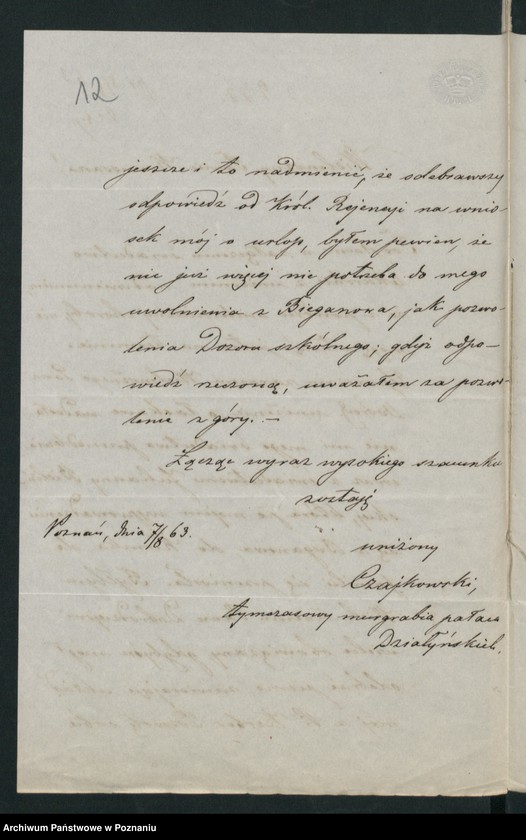 12
jeszcze i to nadmienić, że odebrawszy
odpowiedź od Król. Rejencyi na wnio-
sek mój o urlop, byłem pewien, że
nic już więcej nie potrzeba do mego
uwolnienia z Bieganowa, jak pozwo-
lenia Dozoru szkólnego; gdyż odpo-
wiedź rzeczoną, uważałem za pozwo-
lenie z góry. –
Łącząc wyraz wysokiego szacunku
zostaję
Poznań, dnia 7/8 63.
uniżony
Czajkowski,
tymczasowy murgrabia pałacu
Działyńskich.
Archiwum Państwowe w Poznaniu